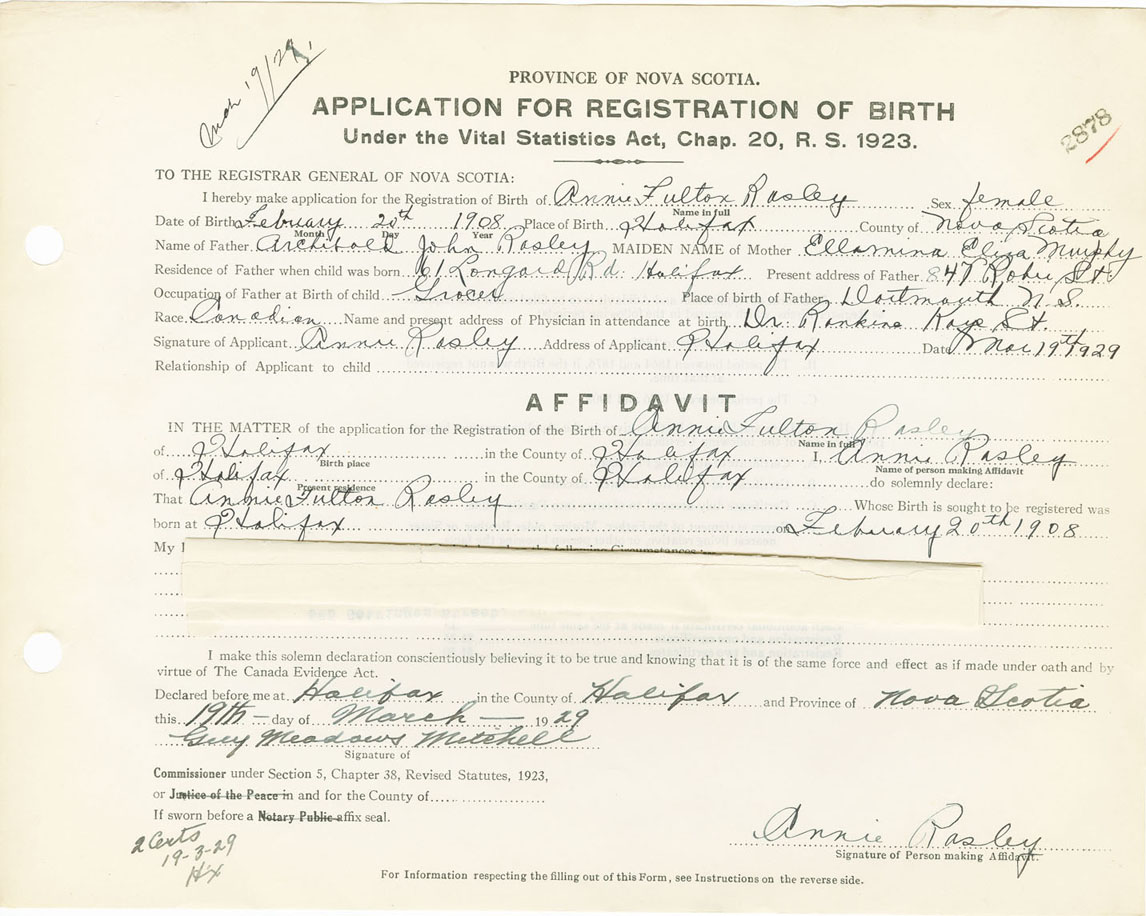 Mch 19/29.
PROVINCE OF NOVA SCOTIA.
APPLICATION FOR REGISTRATION OF BIRTH
Under the Vital Statistics Act, Chap. 20, R. S. 1923.
2878
TO THE REGISTRAR GENERAL OF NOVA SCOTIA:
I hereby make application for the Registration of Birth of Annie Fulton Rasley Sex female
Name in full
Date of Birth February 20th 1908 Place of Birth Halifax County of Nova Scotia
Month Day Year
Name of Father Archibald John Rasley MAIDEN NAME of Mother Ellamina Eliza Murphy
Residence of Father when child was born 61 Longard Rd. Halifax Present address of Father 847 Robie St.
Occupation of Father at Birth of child Grocer Place of birth of Father Dartmouth N.S.
Race Canadian Name and present address of Physician in attendance at birth Dr. Rankine Kaye St.
Signature of Applicant Annie Rasley Address of Applicant Halifax Date Mar 19th 1929
Relationship of Applicant to child
AFFIDAVIT
IN THE MATTER of the application for the Registration of the Birth of Annie Fulton Rasley
Name in full
of Halifax in the County of Halifax I, Annie Rasley
Birth place Name of person making Affidavit
of Halifax in the County of Halifax do solemnly declare:
Present residence
That Annie Fulton Rasley Whose Birth is sought to be registered was
born at Halifax on February 20th 1908
My
I make this solemn declaration conscientiously believing it to be true and knowing that it is of the same force and effect as if made under oath and by
virtue of The Canada Evidence Act.
Declared before me at Halifax in the County of Halifax and Province of Nova Scotia
this 19th – day of March – 1929
Guy Meadows Mitchell
Signature of
Commissioner under Section 5, Chapter 38, Revised Statutes, 1923,
or Justice of the Peace in and for the County of
If sworn before a Notary Public affix seal.
2 Certs
19-3-29
Hx
Annie Rasley
Signature of Person making Affidavit.
For Information respecting the filling out of this Form, see Instructions on the reverse side.